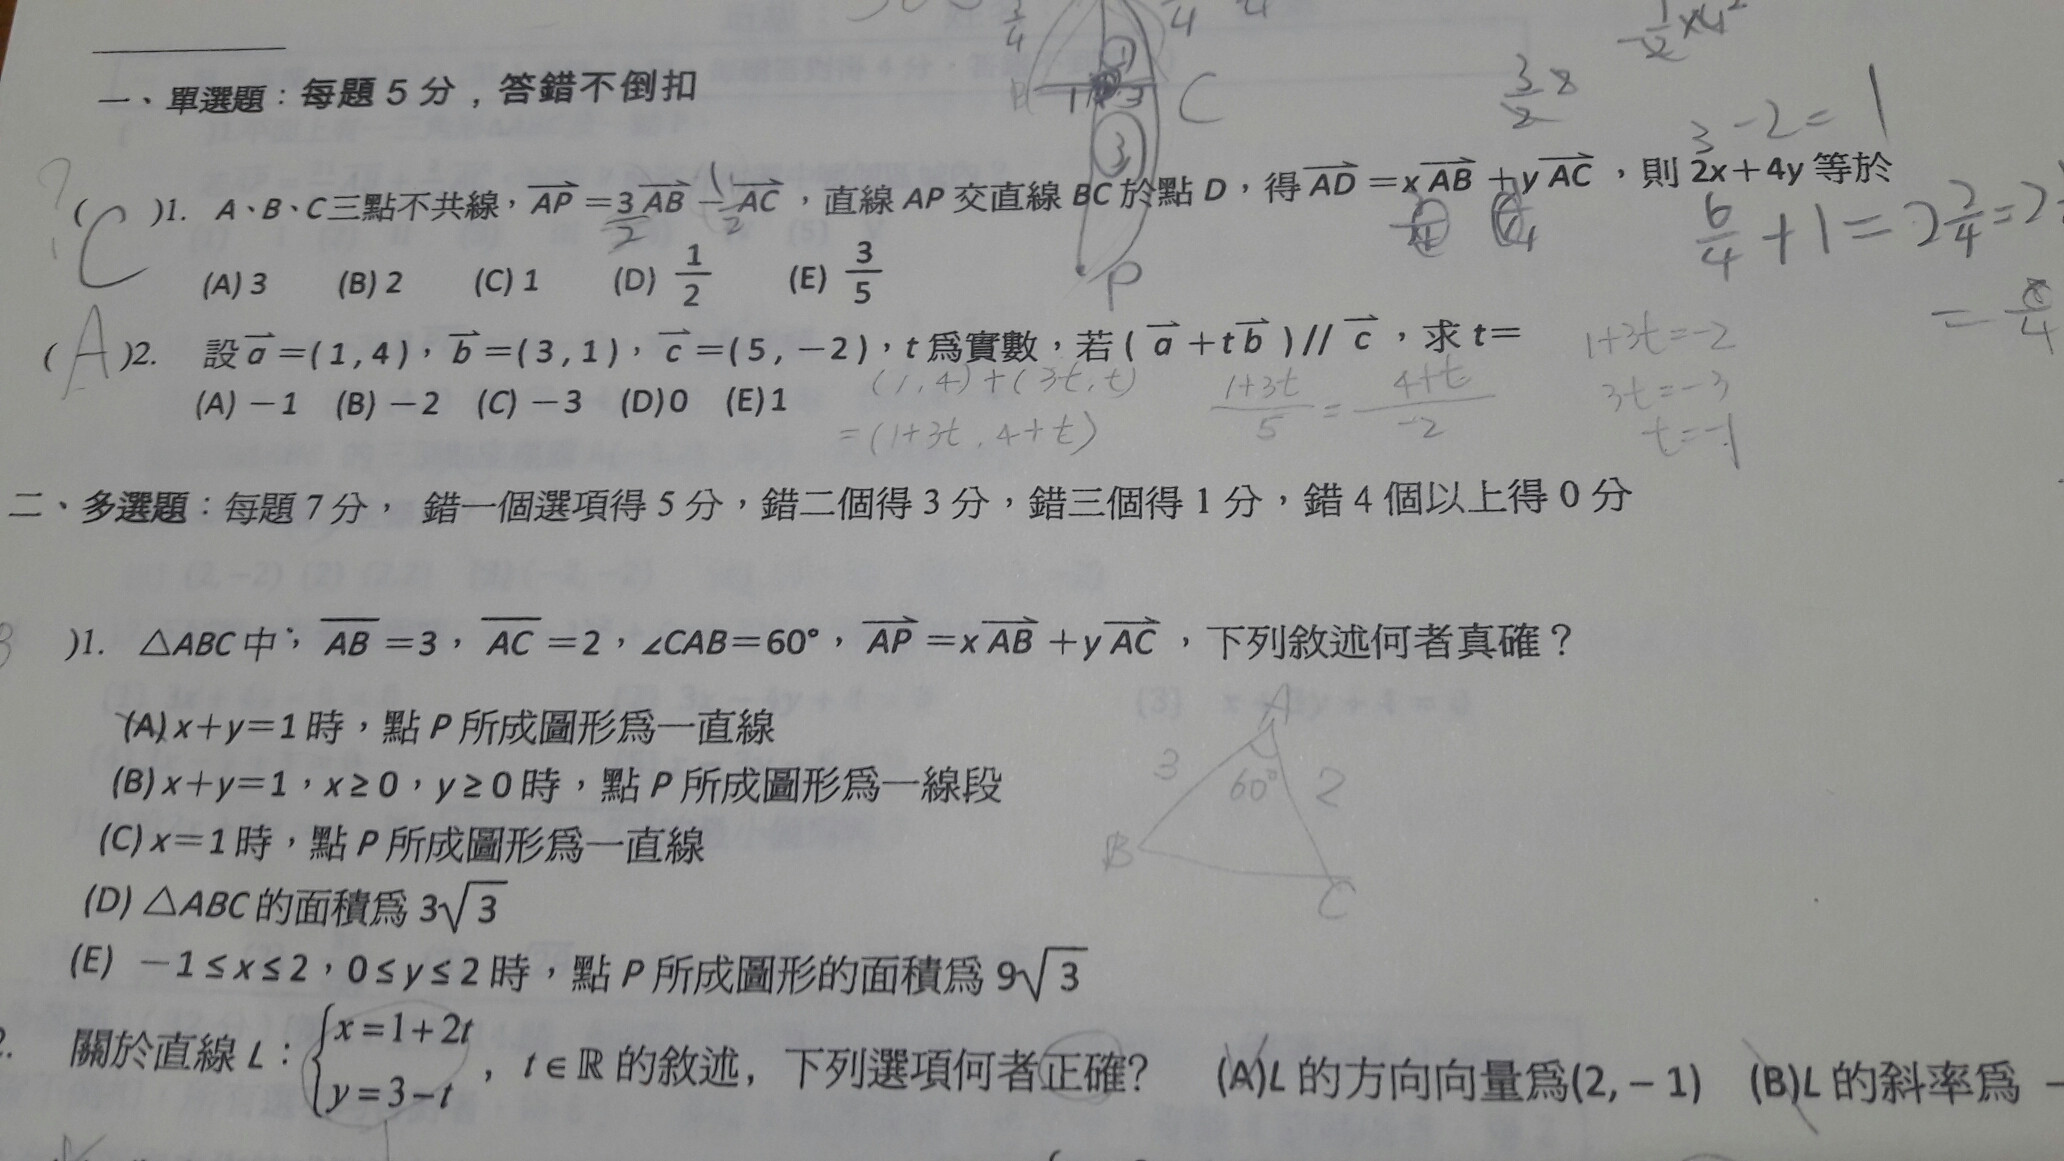 一、單選題：每題 5 分，答錯不倒扣
( C )1. A、B、C三點不共線，AP = 3/2 AB − 1/2 AC，直線 AP 交直線 BC 於點 D，得 AD = x AB + y AC，則 2x+4y 等於
(A) 3 (B) 2 (C) 1 (D) 1/2 (E) 3/5
( A )2. 設 a =(1,4)，b =(3,1)，c =(5,−2)，t 為實數，若( a +t b )// c，求 t=
(A) −1 (B) −2 (C) −3 (D)0 (E)1
(1,4)+(3t,t)
=(1+3t,4+t)
1+3t/5 = 4+t/-2
1+3t=-2
3t=-3
t=-1
3-2=1
6/4+1=2 2/4=2
B 1 3 C
① ③
P
二、多選題：每題 7 分， 錯一個選項得 5 分，錯二個得 3 分，錯三個得 1 分，錯 4 個以上得 0 分
)1. △ABC 中，AB =3，AC =2，∠CAB=60°，AP =x AB +y AC，下列敘述何者真確？
(A) x+y=1 時，點 P 所成圖形為一直線
(B) x+y=1，x≥0，y≥0 時，點 P 所成圖形為一線段
(C) x=1 時，點 P 所成圖形為一直線
(D) △ABC 的面積為 3√3
(E) −1≤x≤2，0≤y≤2 時，點 P 所成圖形的面積為 9√3
A
3 60° 2
B
C
2. 關於直線 L：{x=1+2t
y=3−t，t∈ℝ 的敘述, 下列選項何者正確? (A)L 的方向向量為(2,−1) (B)L 的斜率為 −